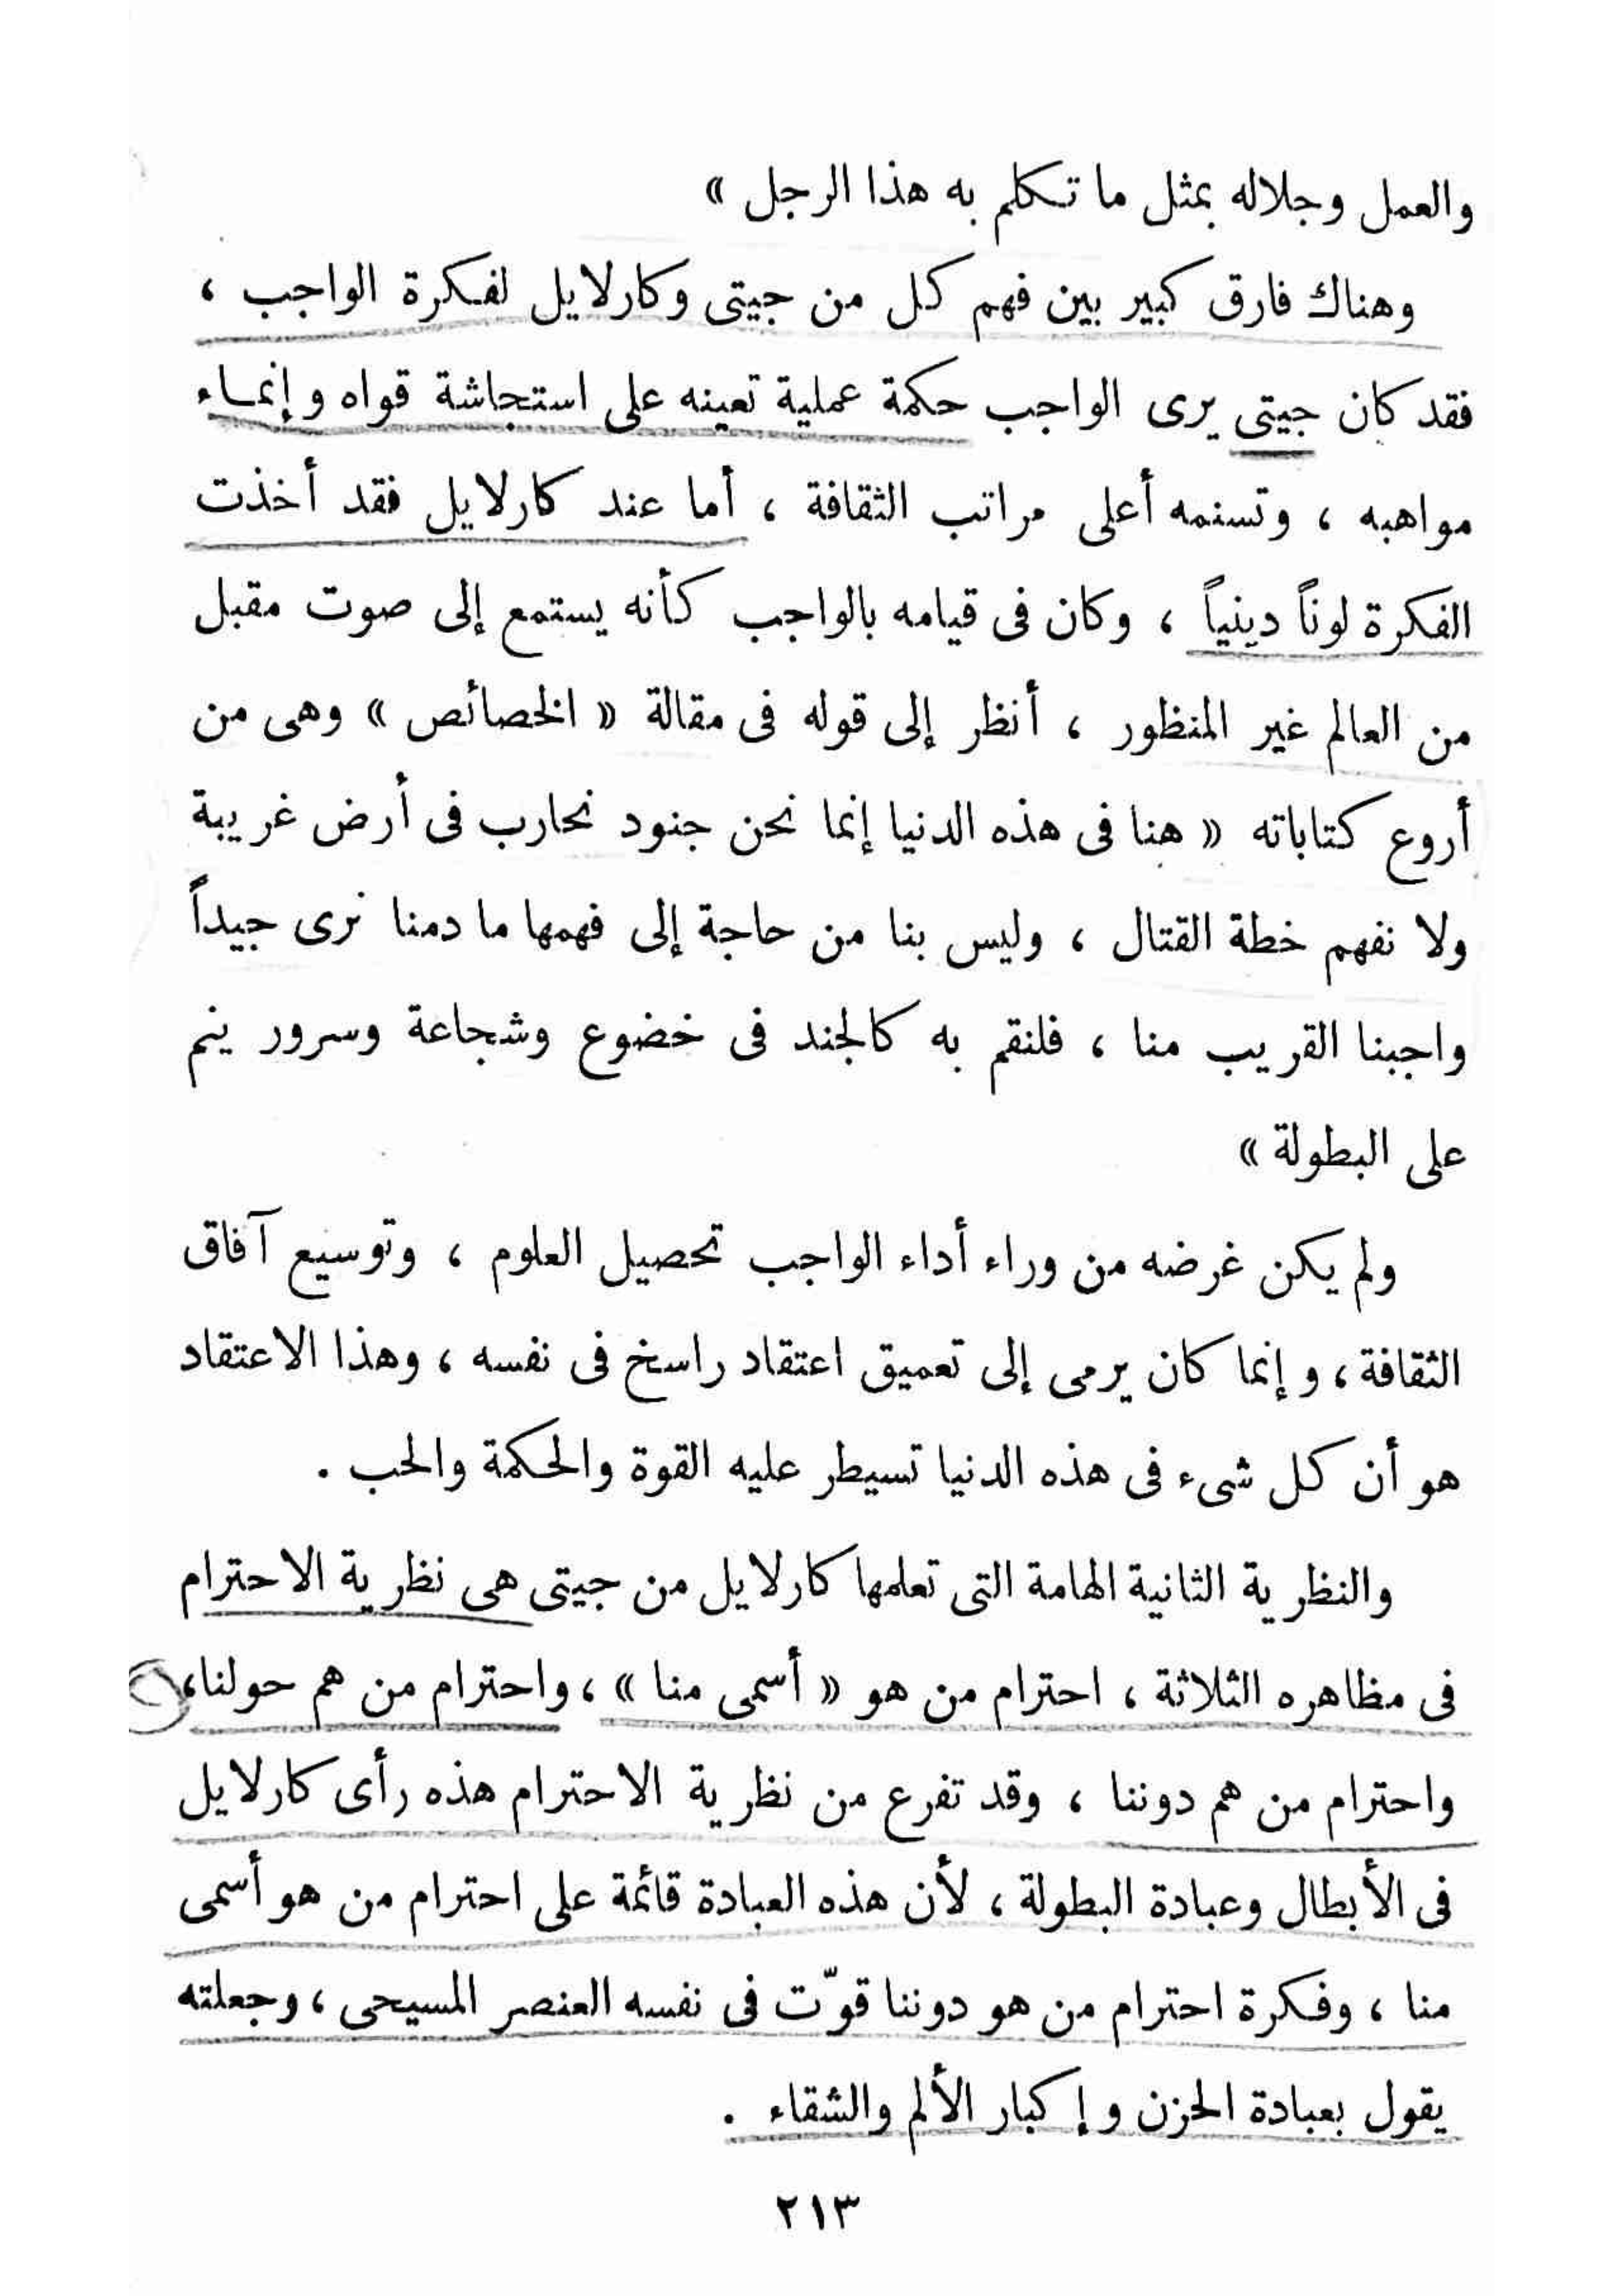 والعمل وجلاله بمثل ما تكلم به هذا الرجل »
وهناك فارق كبير بين فهم كل من جيتى وكارلايل لفكرة الواجب ،
فقد كان جيتى يرى الواجب حكمة عملية تعينه على استجاشة قواه وإنماء
مواهبه ، وتسنمه أعلى مراتب الثقافة ، أما عند كارلايل فقد أخذت
الفكرة لوناً دينياً ، وكان فى قيامه بالواجب كأنه يستمع إلى صوت مقبل
من العالم غير المنظور ، أنظر إلى قوله فى مقالة « الخصائص » وهى من
أروع كتاباته « هنا فى هذه الدنيا إنما نحن جنود نحارب فى أرض غريبة
ولا نفهم خطة القتال ، وليس بنا من حاجة إلى فهمها ما دمنا نرى جيداً
واجبنا القريب منا ، فلنقم به كالجند فى خضوع وشجاعة وسرور ينم
على البطولة »
ولم يكن غرضه من وراء أداء الواجب تحصيل العلوم ، وتوسيع آفاق
الثقافة ، وإنما كان يرمى إلى تعميق اعتقاد راسخ فى نفسه ، وهذا الاعتقاد
هو أن كل شىء فى هذه الدنيا تسيطر عليه القوة والحكمة والحب .
والنظرية الثانية الهامة التى تعلمها كارلايل من جيتى هى نظرية الاحترام
فى مظاهره الثلاثة ، احترام من هو « أسمى منا » ، واحترام من هم حولنا ،
واحترام من هم دوننا ، وقد تفرع من نظرية الاحترام هذه رأى كارلايل
فى الأبطال وعبادة البطولة ، لأن هذه العبادة قائمة على احترام من هو أسمى
منا ، وفكرة احترام من هو دوننا قوّت فى نفسه العنصر المسيحى ، وجعلته
يقول بعبادة الحزن وإكبار الألم والشقاء .
٢١٣